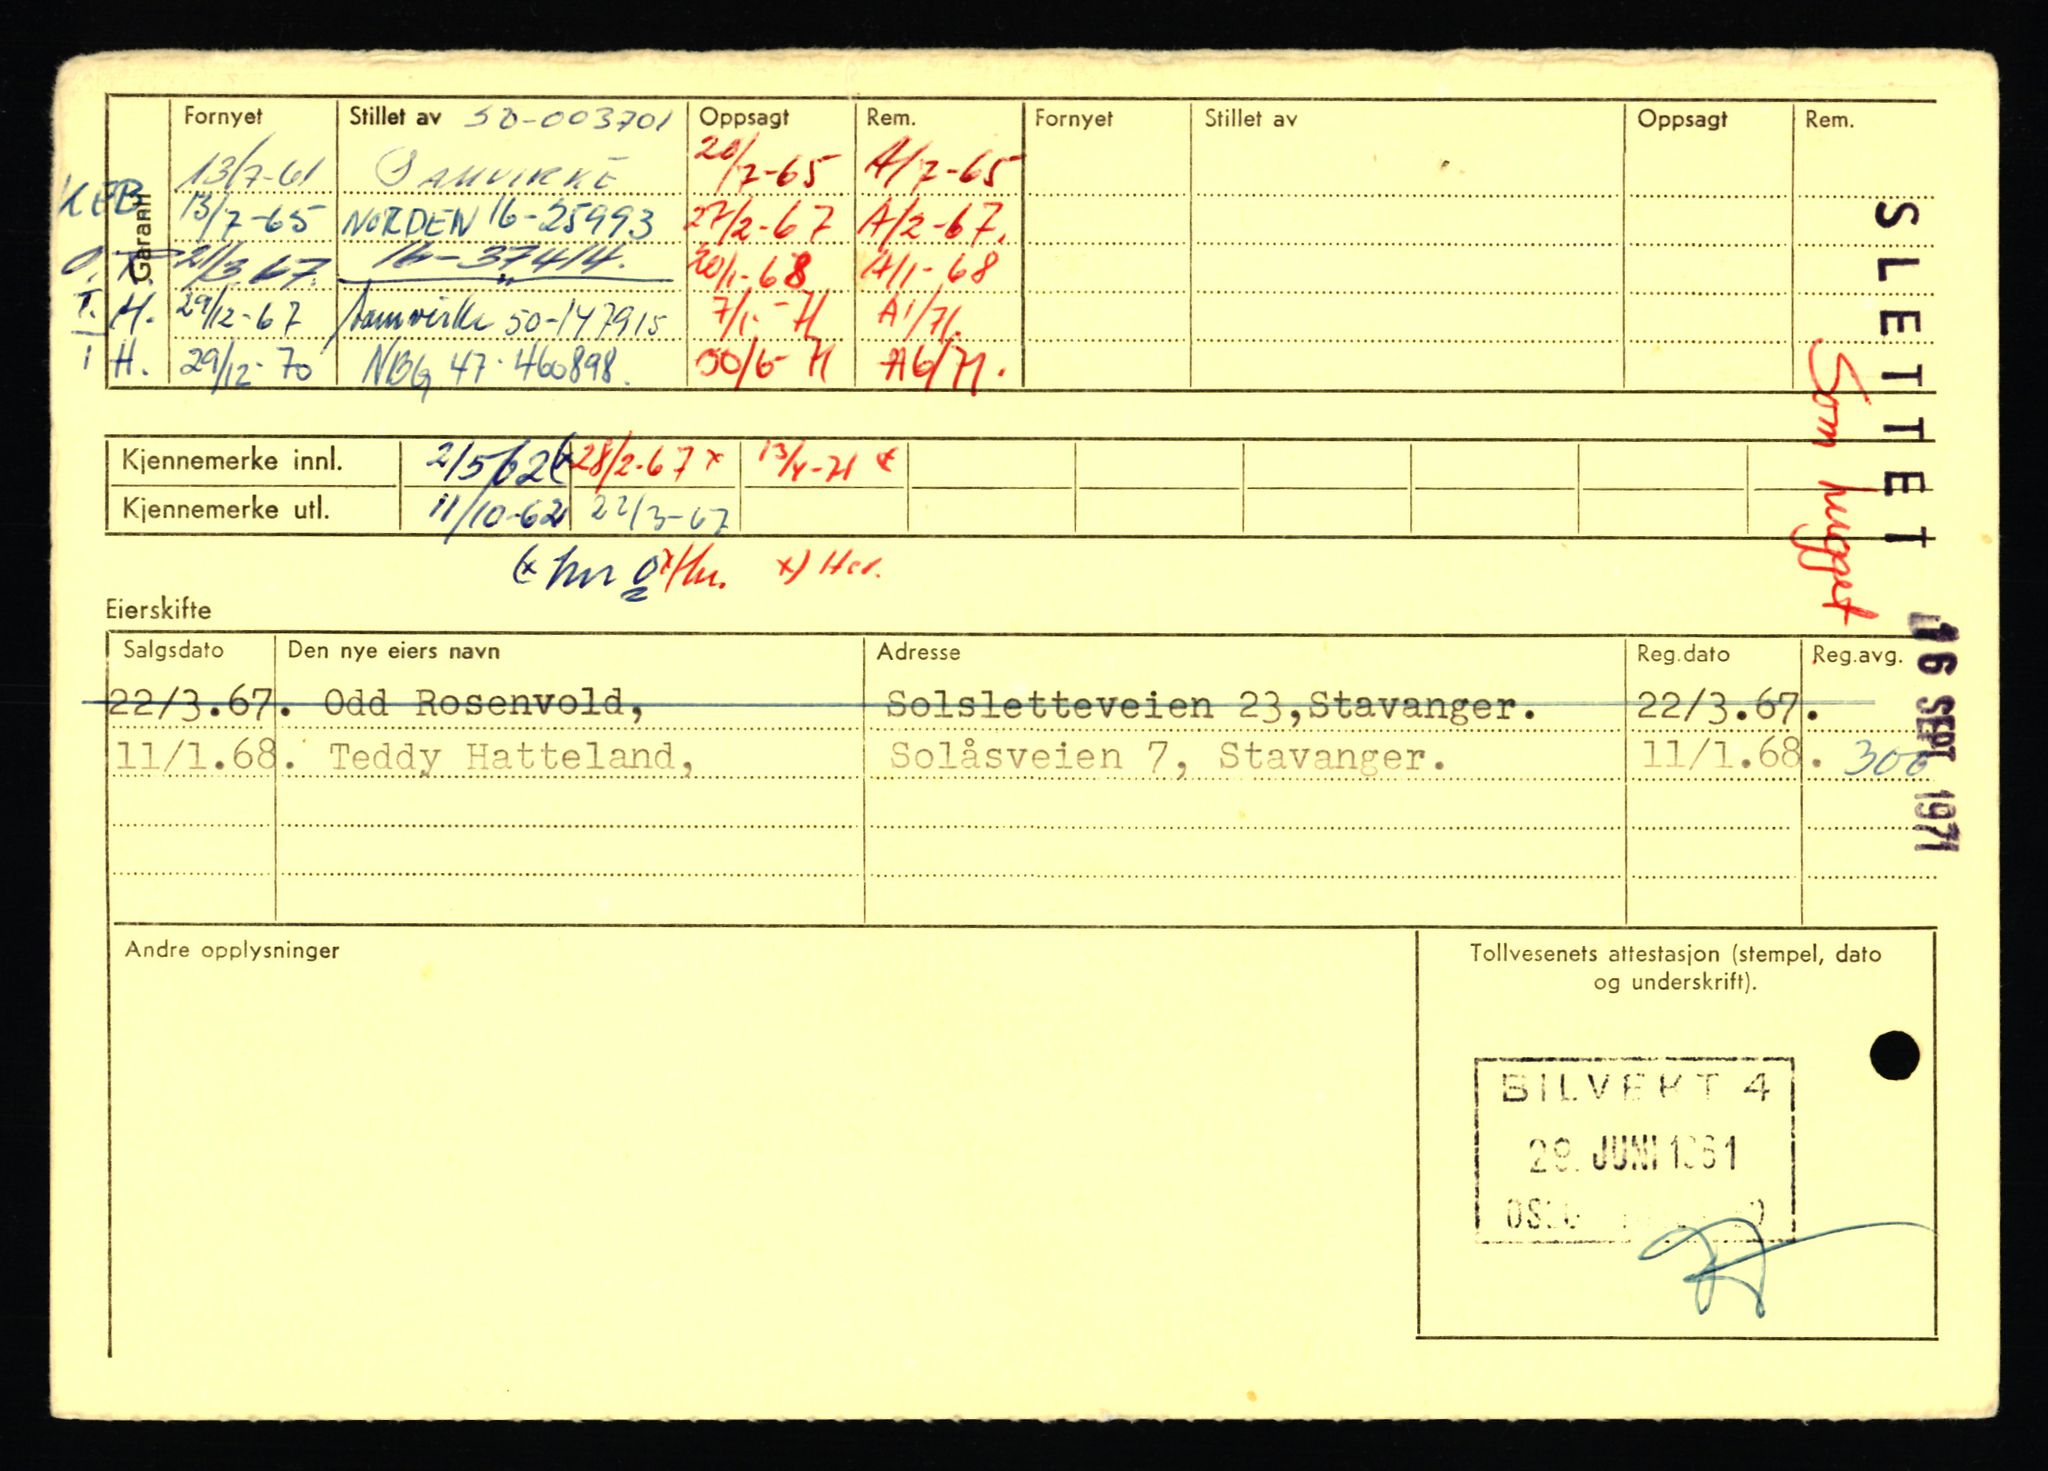 Garanti
Fornyet Stillet av 50-003701 Oppsagt Rem. Fornyet Stillet av Oppsagt Rem.
13/7-61 SAMVIRKE 20/7-65 A/7-65
KEB 13/7-65 NORDEN 16-25993 27/2-67 A/2-67.
21/3 67. 16-37414. 20/1-68 A/1-68
T. H. 29/12-67 Samvirke 50-147915 7/1-71 A1/71.
T H. 29/12-70 NBG 47-460898. 30/6-71 A6/71.
Kjennemerke innl. 2/5/62(x 28/2-67 x 13/4-71 x
Kjennemerke utl. 11/10-62 22/3-67
(x hnr x/Hnr. x) Her.
Eierskifte
Salgsdato Den nye eiers navn Adresse Reg.dato Reg.avg.
22/3.67. Odd Rosenvold, Solsletteveien 23,Stavanger. 22/3.67.
11/1.68. Teddy Hatteland, Solåsveien 7, Stavanger. 11/1.68. 300
Andre opplysninger
Tollvesenets attestasjon (stempel, dato
og underskrift).
BILVERT 4
28. JUNI 1961
OSLO
SLETTET 16 SEPT 1971
Som hugget